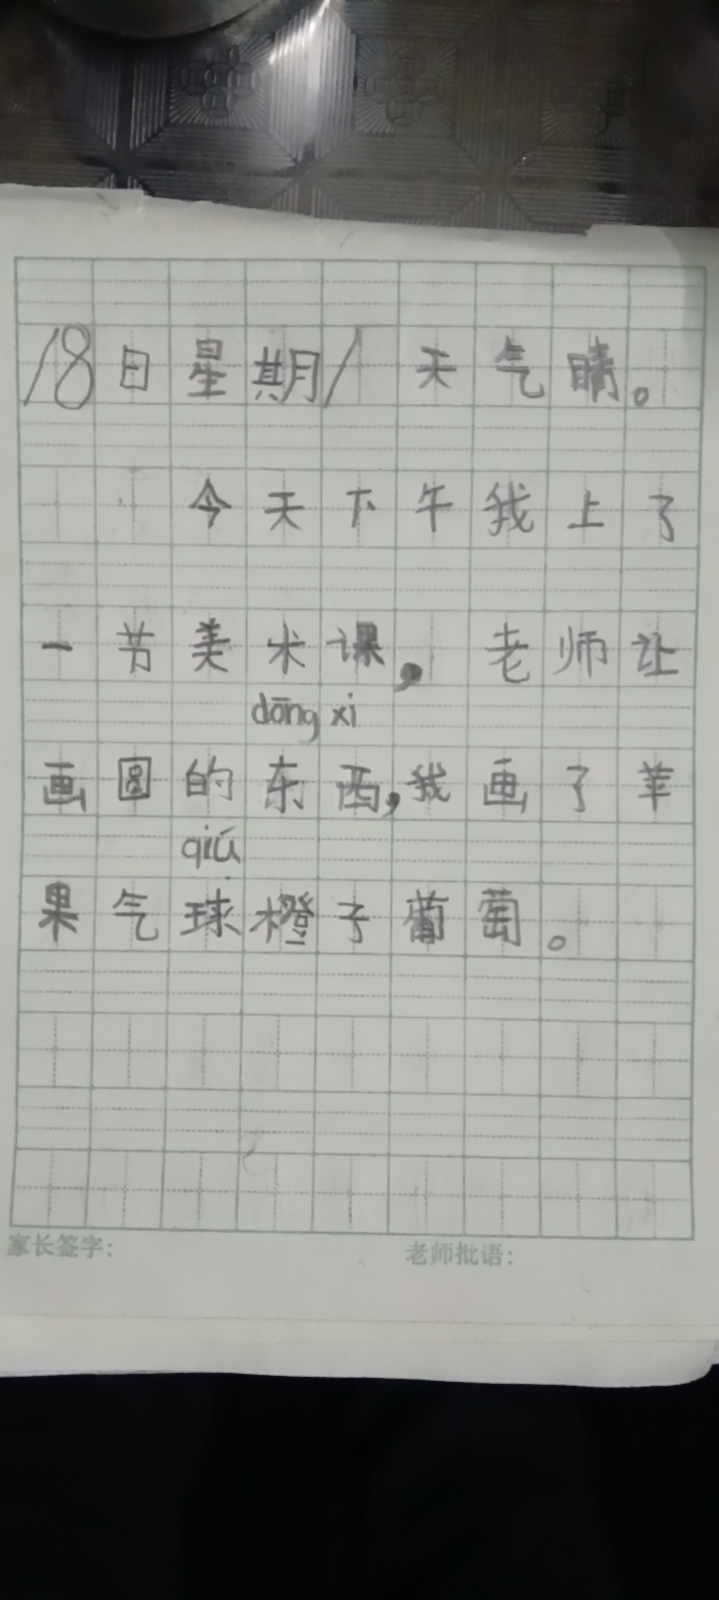 18日星期1 天气晴。
今天下午我上了
一节美术课，老师让
dōng xi
画圆的东西，我画了苹
qiú
果气球橙子葡萄。
家长签字：
老师批语：